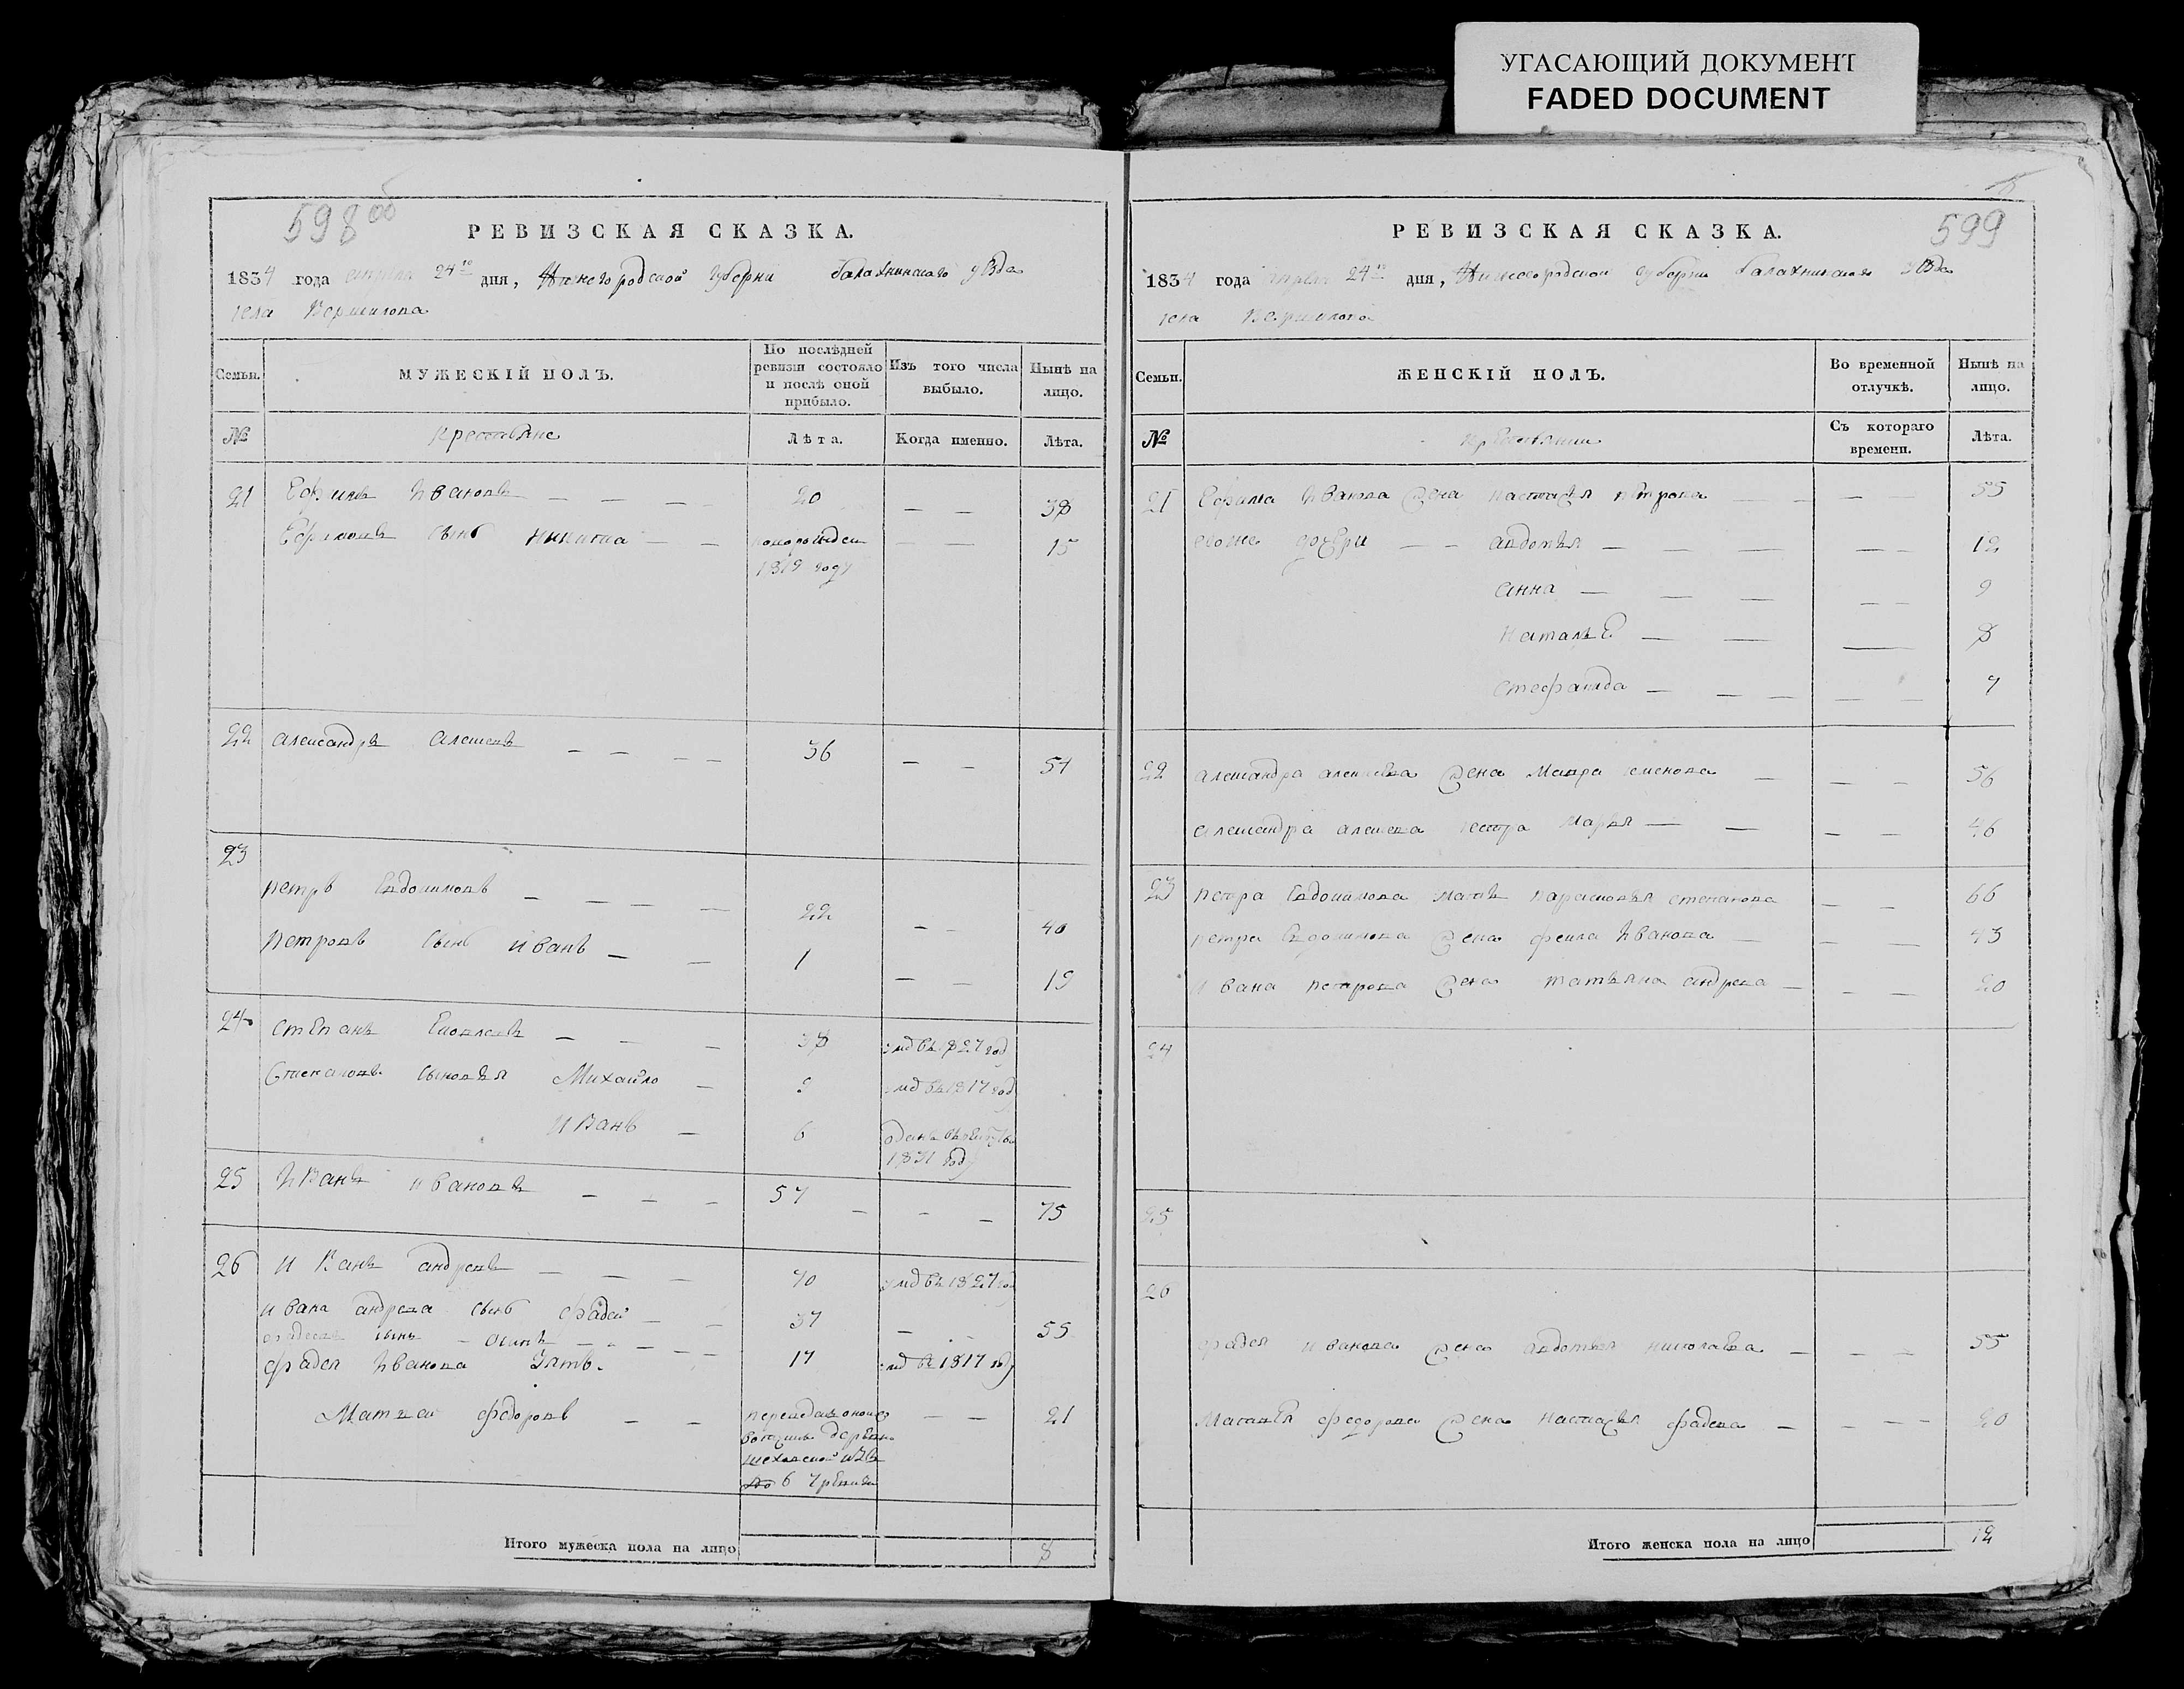 УГАСАЮЩИЙ ДОКУМЕНТ
FADED DOCUMENT
598 об
РЕВИЗСКАЯ СКАЗКА.
1834 года апреля 24го дня, Нижегородской Губерни балахнинскаго уѣзда
села
МУЖЕСКІЙ ПОЛЪ.
Семьи.
По послѣдней ревизіи состояло и послѣ оной прибыло.
Изъ того числа выбыло.
Нынѣ на лицо.
№ Крестьяне Лѣта. Когда именно. Лѣта.
21 Ефимъ Ивановъ — — — 20 — — 38
Ефимовъ сынъ Никита — — — — 15
1819 году
22 александръ алексевъ — — — — 36 — — 51
23
петръ Евдокимовъ — — — — 22 — — 40
петровъ сынъ иванъ — — 1 — — 19
24 степанъ — — — 38 умъ въ 1827 год
Степановы сыновья Михайло — 9 умъ въ 1817 год
иванъ — 6 отданъ въ рекруты
1831 год
25 Иванъ ивановъ — — — 57 — — — 75
26 и ванъ андревъ — — — 70 умъ въ 1827 год
ивана андрева сынъ фадей — — 37 — 55
фадеевъ сынъ — осипъ — — — 17 умъ въ 1817 году
фадея Иванова Зять.
Матвей федоровъ — — — — 21
Итого мужеска пола на лицо 8
599
РЕВИЗСКАЯ СКАЗКА.
1834 года апреля 24го дня, Нижегородской губерни балахнинскаго уѣзда
села
Семьи.
ЖЕНСКІЙ ПОЛЪ.
Во временной отлучкѣ.
Нынѣ на лицо.
№
Съ котораго времени.
Лѣта.
21 Ефима Иванова жена настасья петрова — — 55
ево же дочери — — авдотья — — — — — 12
анна — — — — — 9
наталья — — — 8
степанида — — — — — 7
22 александра алексева жена Мавра семенова — — — 56
александра алексева сестра марья — — — — 46
23 петра Евдокимова мать парасковья степанова — — 66
петра Евдокимова жена фекла Иванова — — — 43
Ивана петрова жена татьяна андрева — — — 20
24
25
26
фадея иванова жена авдотья николаева — — — 55
Матвея федорова жена настасья фадева — — — — 20
Итого женска пола на лицо 12